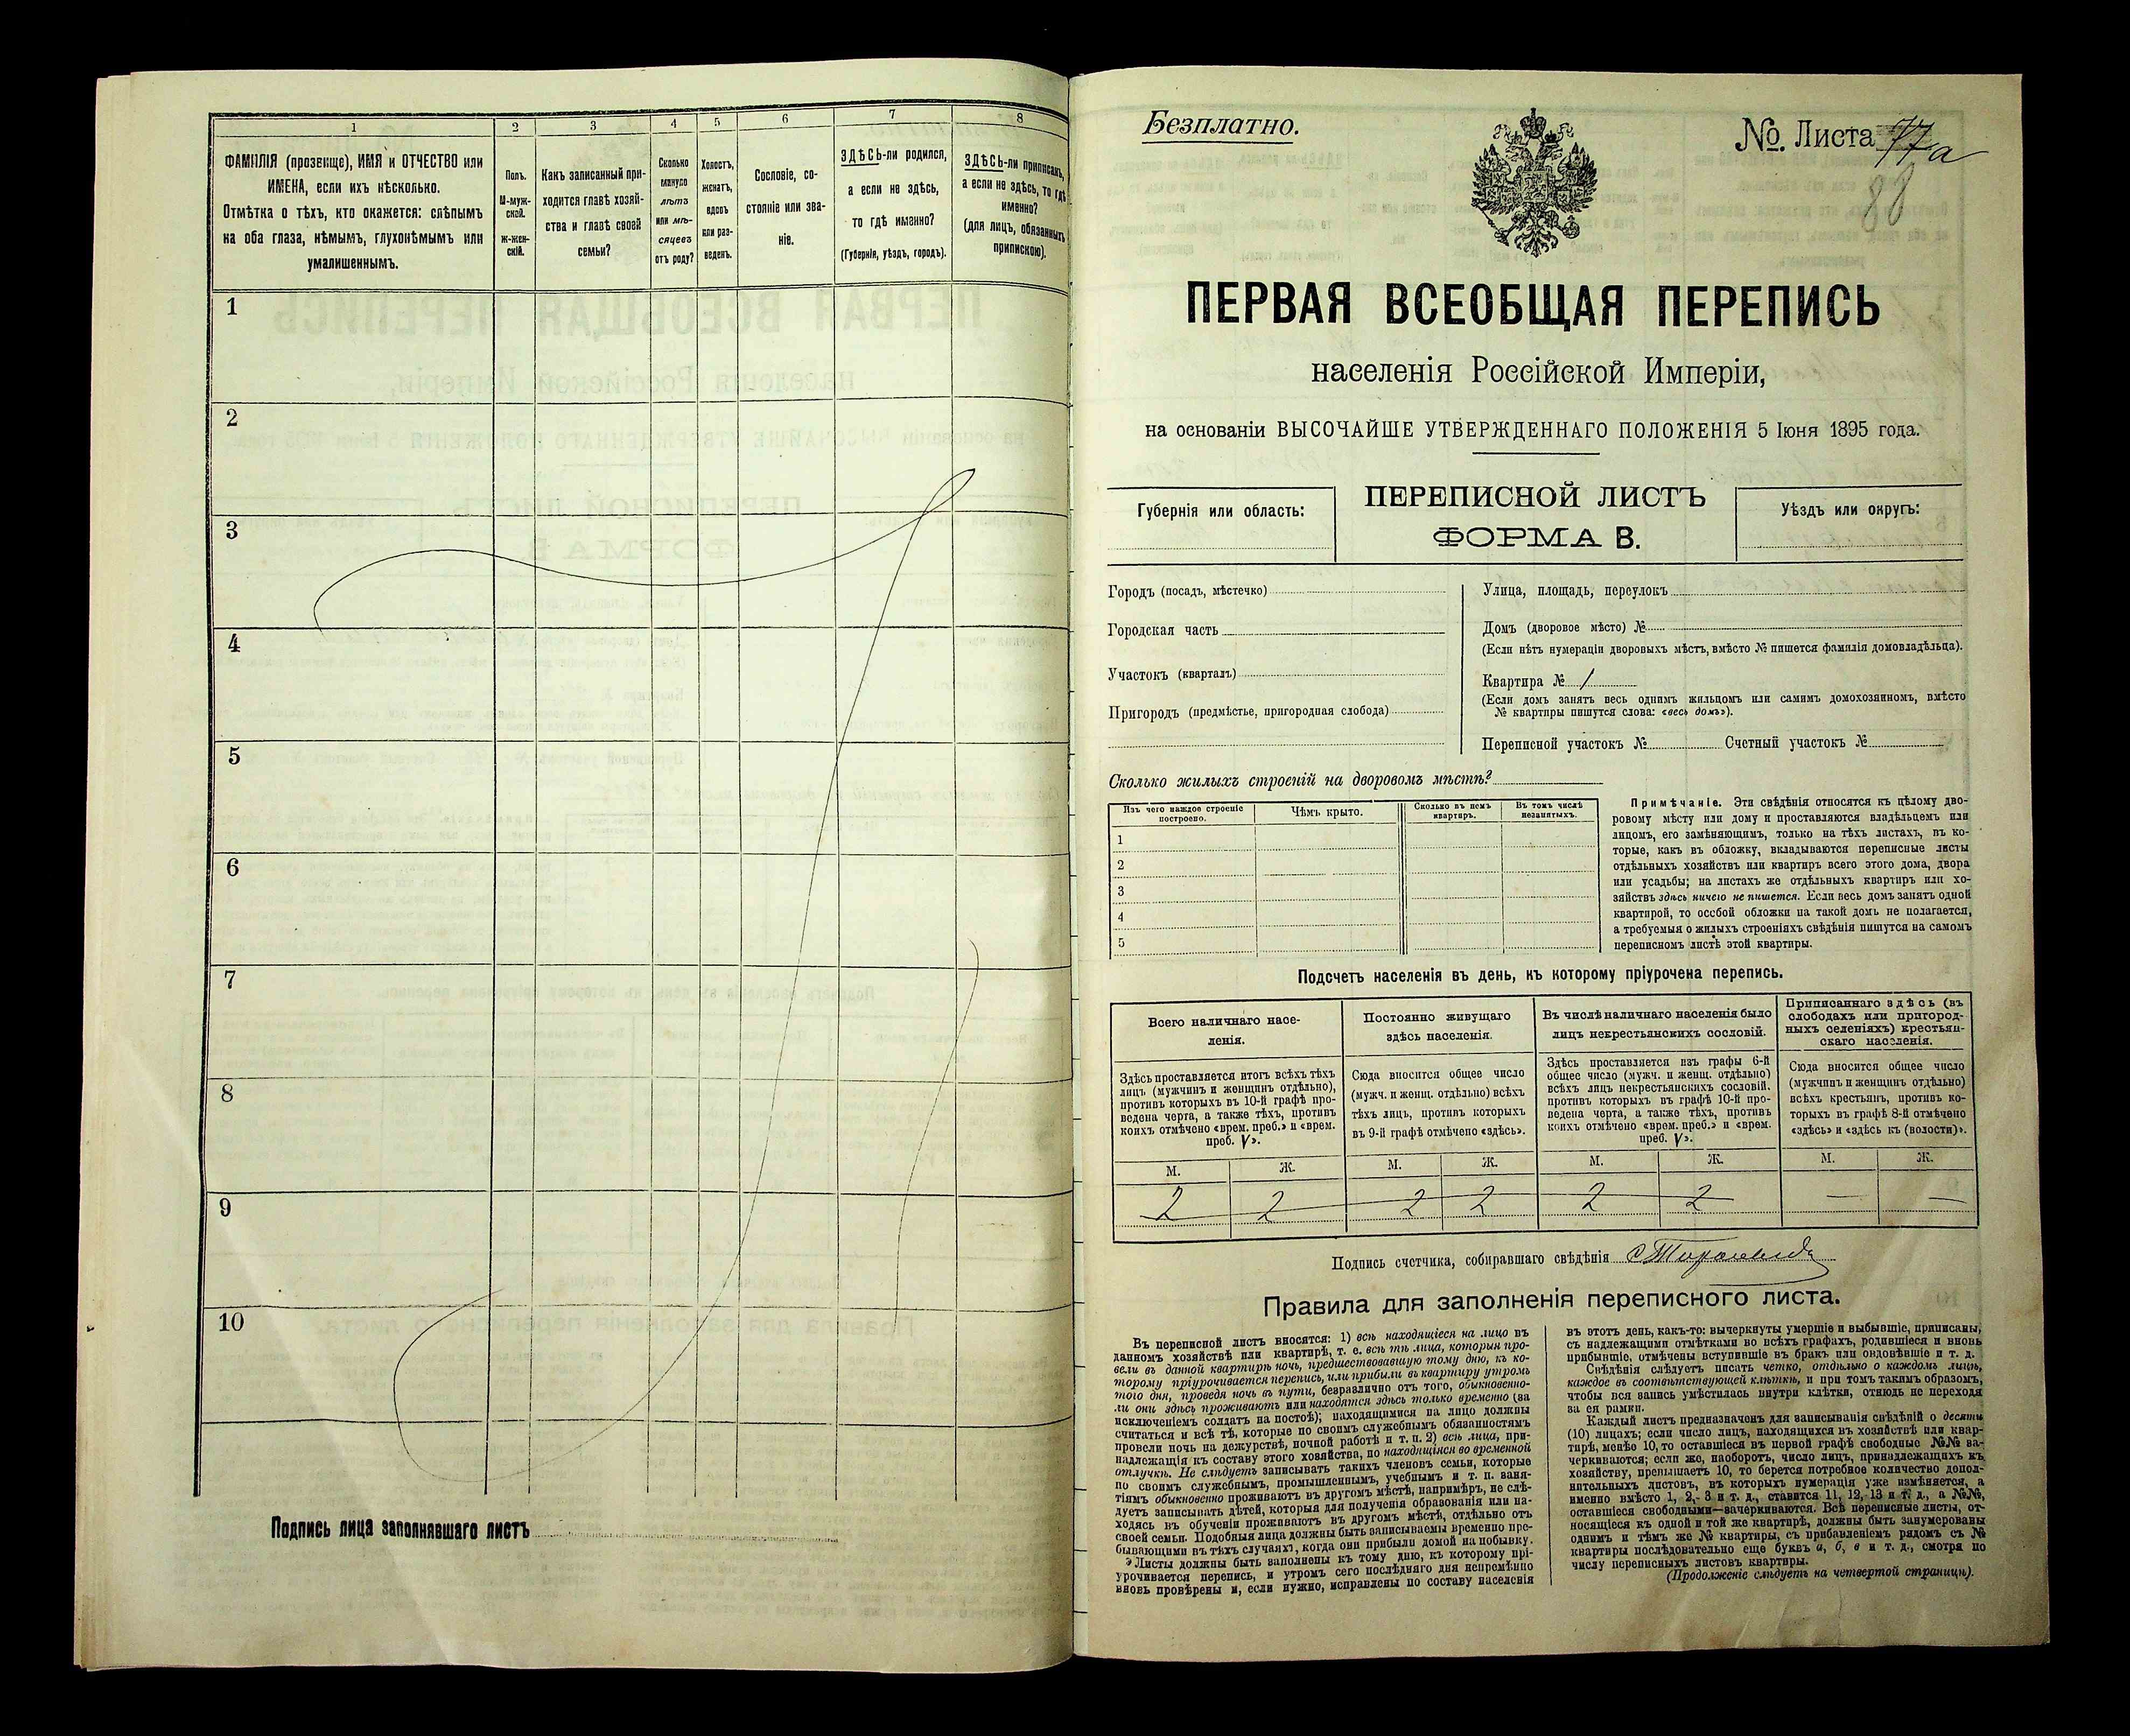 1
2
3
4
5
6
7
8
ФАМИЛІЯ (прозвище), ИМЯ и ОТЧЕСТВО или
ИМЕНА, если ихъ нѣсколько.
Отмѣтка о тѣхъ, кто окажется: слѣпымъ
на оба глаза, нѣмымъ, глухонѣмымъ или
умалишеннымъ.
Полъ.
М-муж-
ской.
Ж-жен-
скій.
Какъ записанный при-
ходится главѣ хозяй-
ства и главѣ своей
семьи?
Сколько
минуло
лѣтъ
или мѣ-
сяцевъ
отъ роду?
Холостъ,
женатъ,
вдовъ
или раз-
веденъ.
Сословіе, со-
стояніе или зва-
ніе.
ЗДѢСЬ-ли родился,
а если не здѣсь,
то гдѣ именно?
(Губернія, уѣздъ, городъ).
ЗДѢСЬ-ли приписанъ,
а если не здѣсь, то гдѣ
именно?
(для лицъ, обязанныхъ
припискою).
1
2
3
4
5
6
7
8
9
10
Подпись лица заполнявшаго листъ
Безплатно.
№. Листа 77а
88
ПЕРВАЯ ВСЕОБЩАЯ ПЕРЕПИСЬ
населенія Россійской Имперіи,
на основаніи ВЫСОЧАЙШЕ УТВЕРЖДЕННАГО ПОЛОЖЕНІЯ 5 Іюня 1895 года.
Губернія или область:
ПЕРЕПИСНОЙ ЛИСТЪ
ФОРМА В.
Уѣздъ или округъ:
Городъ (посадъ, мѣстечко)
Городская часть
Участокъ (кварталъ)
Пригородъ (предмѣстье, пригородная слобода)
Улица, площадь, переулокъ
Домъ (дворовое мѣсто) №
(Если нѣтъ нумераціи дворовыхъ мѣстъ, вмѣсто № пишется фамилія домовладѣльца).
Квартира № 1
(Если домъ занятъ весь однимъ жильцомъ или самимъ домохозяиномъ, вмѣсто
№ квартиры пишутся слова: «весь домъ»).
Переписной участокъ № Счетный участокъ №
Сколько жилыхъ строеній на дворовомъ мѣстѣ?
Изъ чего каждое строеніе
построено.
Чѣмъ крыто.
Сколько въ немъ
квартиръ.
Въ томъ числѣ
незанятыхъ.
1
2
3
4
5
Примѣчаніе. Эти свѣдѣнія относятся къ цѣлому дво-
ровому мѣсту или дому и проставляются владѣльцемъ или
лицомъ, его замѣняющимъ, только на тѣхъ листахъ, въ ко-
торые, какъ въ обложку, вкладываются переписные листы
отдѣльныхъ хозяйствъ или квартиръ всего этого дома, двора
или усадьбы; на листахъ же отдѣльныхъ квартиръ или хо-
зяйствъ здѣсь ничего не пишется. Если весь домъ занятъ одной
квартирой, то особой обложки на такой домъ не полагается,
а требуемыя о жилыхъ строеніяхъ свѣдѣнія пишутся на самомъ
переписномъ листѣ этой квартиры.
Подсчетъ населенія въ день, къ которому пріурочена перепись.
Всего наличнаго насе-
ленія.
Постоянно живущаго
здѣсь населенія.
Въ числѣ наличнаго населенія было
лицъ некрестьянскихъ сословій.
Приписаннаго здѣсь (въ
слободахъ или пригород-
ныхъ селеніяхъ) крестьян-
скаго населенія.
Здѣсь проставляется итогъ всѣхъ тѣхъ
лицъ (мужчинъ и женщинъ отдѣльно),
противъ которыхъ въ 10-й графѣ про-
ведена черта, а также тѣхъ, противъ
коихъ отмѣчено «врем. преб.» и «врем.
преб. V».
Сюда вносится общее число
(мужч. и женщ. отдѣльно) всѣхъ
тѣхъ лицъ, противъ которыхъ
въ 9-й графѣ отмѣчено «здѣсь».
Здѣсь проставляется изъ графы 6-й
общее число (мужч. и женщ. отдѣльно)
всѣхъ лицъ некрестьянскихъ сословій,
противъ которыхъ въ графѣ 10-й про-
ведена черта, а также тѣхъ, противъ
коихъ отмѣчено «врем. преб.» и «врем.
преб. V».
Сюда вносится общее число
(мужчинъ и женщинъ отдѣльно)
всѣхъ крестьянъ, противъ ко-
торыхъ въ графѣ 8-й отмѣчено
«здѣсь» и «здѣсь къ (волости)».
М. Ж. М. Ж. М. Ж. М. Ж.
2 2 2 2 2 2 — —
Подпись счетчика, собиравшаго свѣдѣнія
Правила для заполненія переписного листа.
Въ переписной листъ вносятся: 1) всѣ находящіеся на лицо въ
данномъ хозяйствѣ или квартирѣ, т. е. всѣ тѣ лица, которыя про-
вели въ данной квартирѣ ночь, предшествовавшую тому дню, къ ко-
торому пріурочивается перепись, или прибыли въ квартиру утромъ
того дня, проведя ночь въ пути, безразлично отъ того, обыкновенно-
ли они здѣсь проживаютъ или находятся здѣсь только временно (за
исключеніемъ солдатъ на постоѣ); находящимися на лицо должны
считаться и всѣ тѣ, которые по своимъ служебнымъ обязанностямъ
провели ночь на дежурствѣ, ночной работѣ и т. п. 2) всѣ лица, при-
надлежащія къ составу этого хозяйства, но находящіяся во временной
отлучкѣ. Не слѣдуетъ записывать такихъ членовъ семьи, которые
по своимъ служебнымъ, промышленнымъ, учебнымъ и т. п. заня-
тіямъ обыкновенно проживаютъ въ другомъ мѣстѣ, напримѣръ, не слѣ-
дуетъ записывать дѣтей, которыя для полученія образованія или на-
ходясь въ обученіи проживаютъ въ другомъ мѣстѣ, отдѣльно отъ
своей семьи. Подобныя лица должны быть записываемы временно пре-
бывающими въ тѣхъ случаяхъ, когда они прибыли домой на побывку.
Листы должны быть заполнены къ тому дню, къ которому прі-
урочивается перепись, и утромъ сего послѣдняго дня непремѣнно
вновь провѣрены и, если нужно, исправлены по составу населенія
въ этотъ день, какъ-то: вычеркнуты умершіе и выбывшіе, приписаны,
съ надлежащими отмѣтками во всѣхъ графахъ, родившіеся и вновь
прибывшіе, отмѣчены вступившіе въ бракъ или овдовѣвшіе и т. д.
Свѣдѣнія слѣдуетъ писать четко, отдѣльно о каждомъ лицѣ,
каждое въ соотвѣтствующей клѣткѣ, и при томъ такимъ образомъ,
чтобы вся запись умѣстилась внутри клѣтки, отнюдь не переходя
за ея рамки.
Каждый листъ предназначенъ для записыванія свѣдѣній о десяти
(10) лицахъ; если число лицъ, находящихся въ хозяйствѣ или квар-
тирѣ, менѣе 10, то оставшіеся въ первой графѣ свободные №№ за-
черкиваются; если же, наоборотъ, число лицъ, принадлежащихъ къ
хозяйству, превышаетъ 10, то берется потребное количество допол-
нительныхъ листовъ, въ которыхъ нумерація уже измѣняется, а
именно вмѣсто 1, 2, 3 и т. д., ставится 11, 12, 13 и т. д., а №№,
оставшіеся свободными—зачеркиваются. Всѣ переписные листы, от-
носящіеся къ одной и той же квартирѣ, должны быть занумерованы
однимъ и тѣмъ же № квартиры, съ прибавленіемъ рядомъ съ №
квартиры послѣдовательно еще буквъ а, б, в и т. д., смотря по
числу переписныхъ листовъ квартиры.
(Продолженіе слѣдуетъ на четвертой страницѣ).